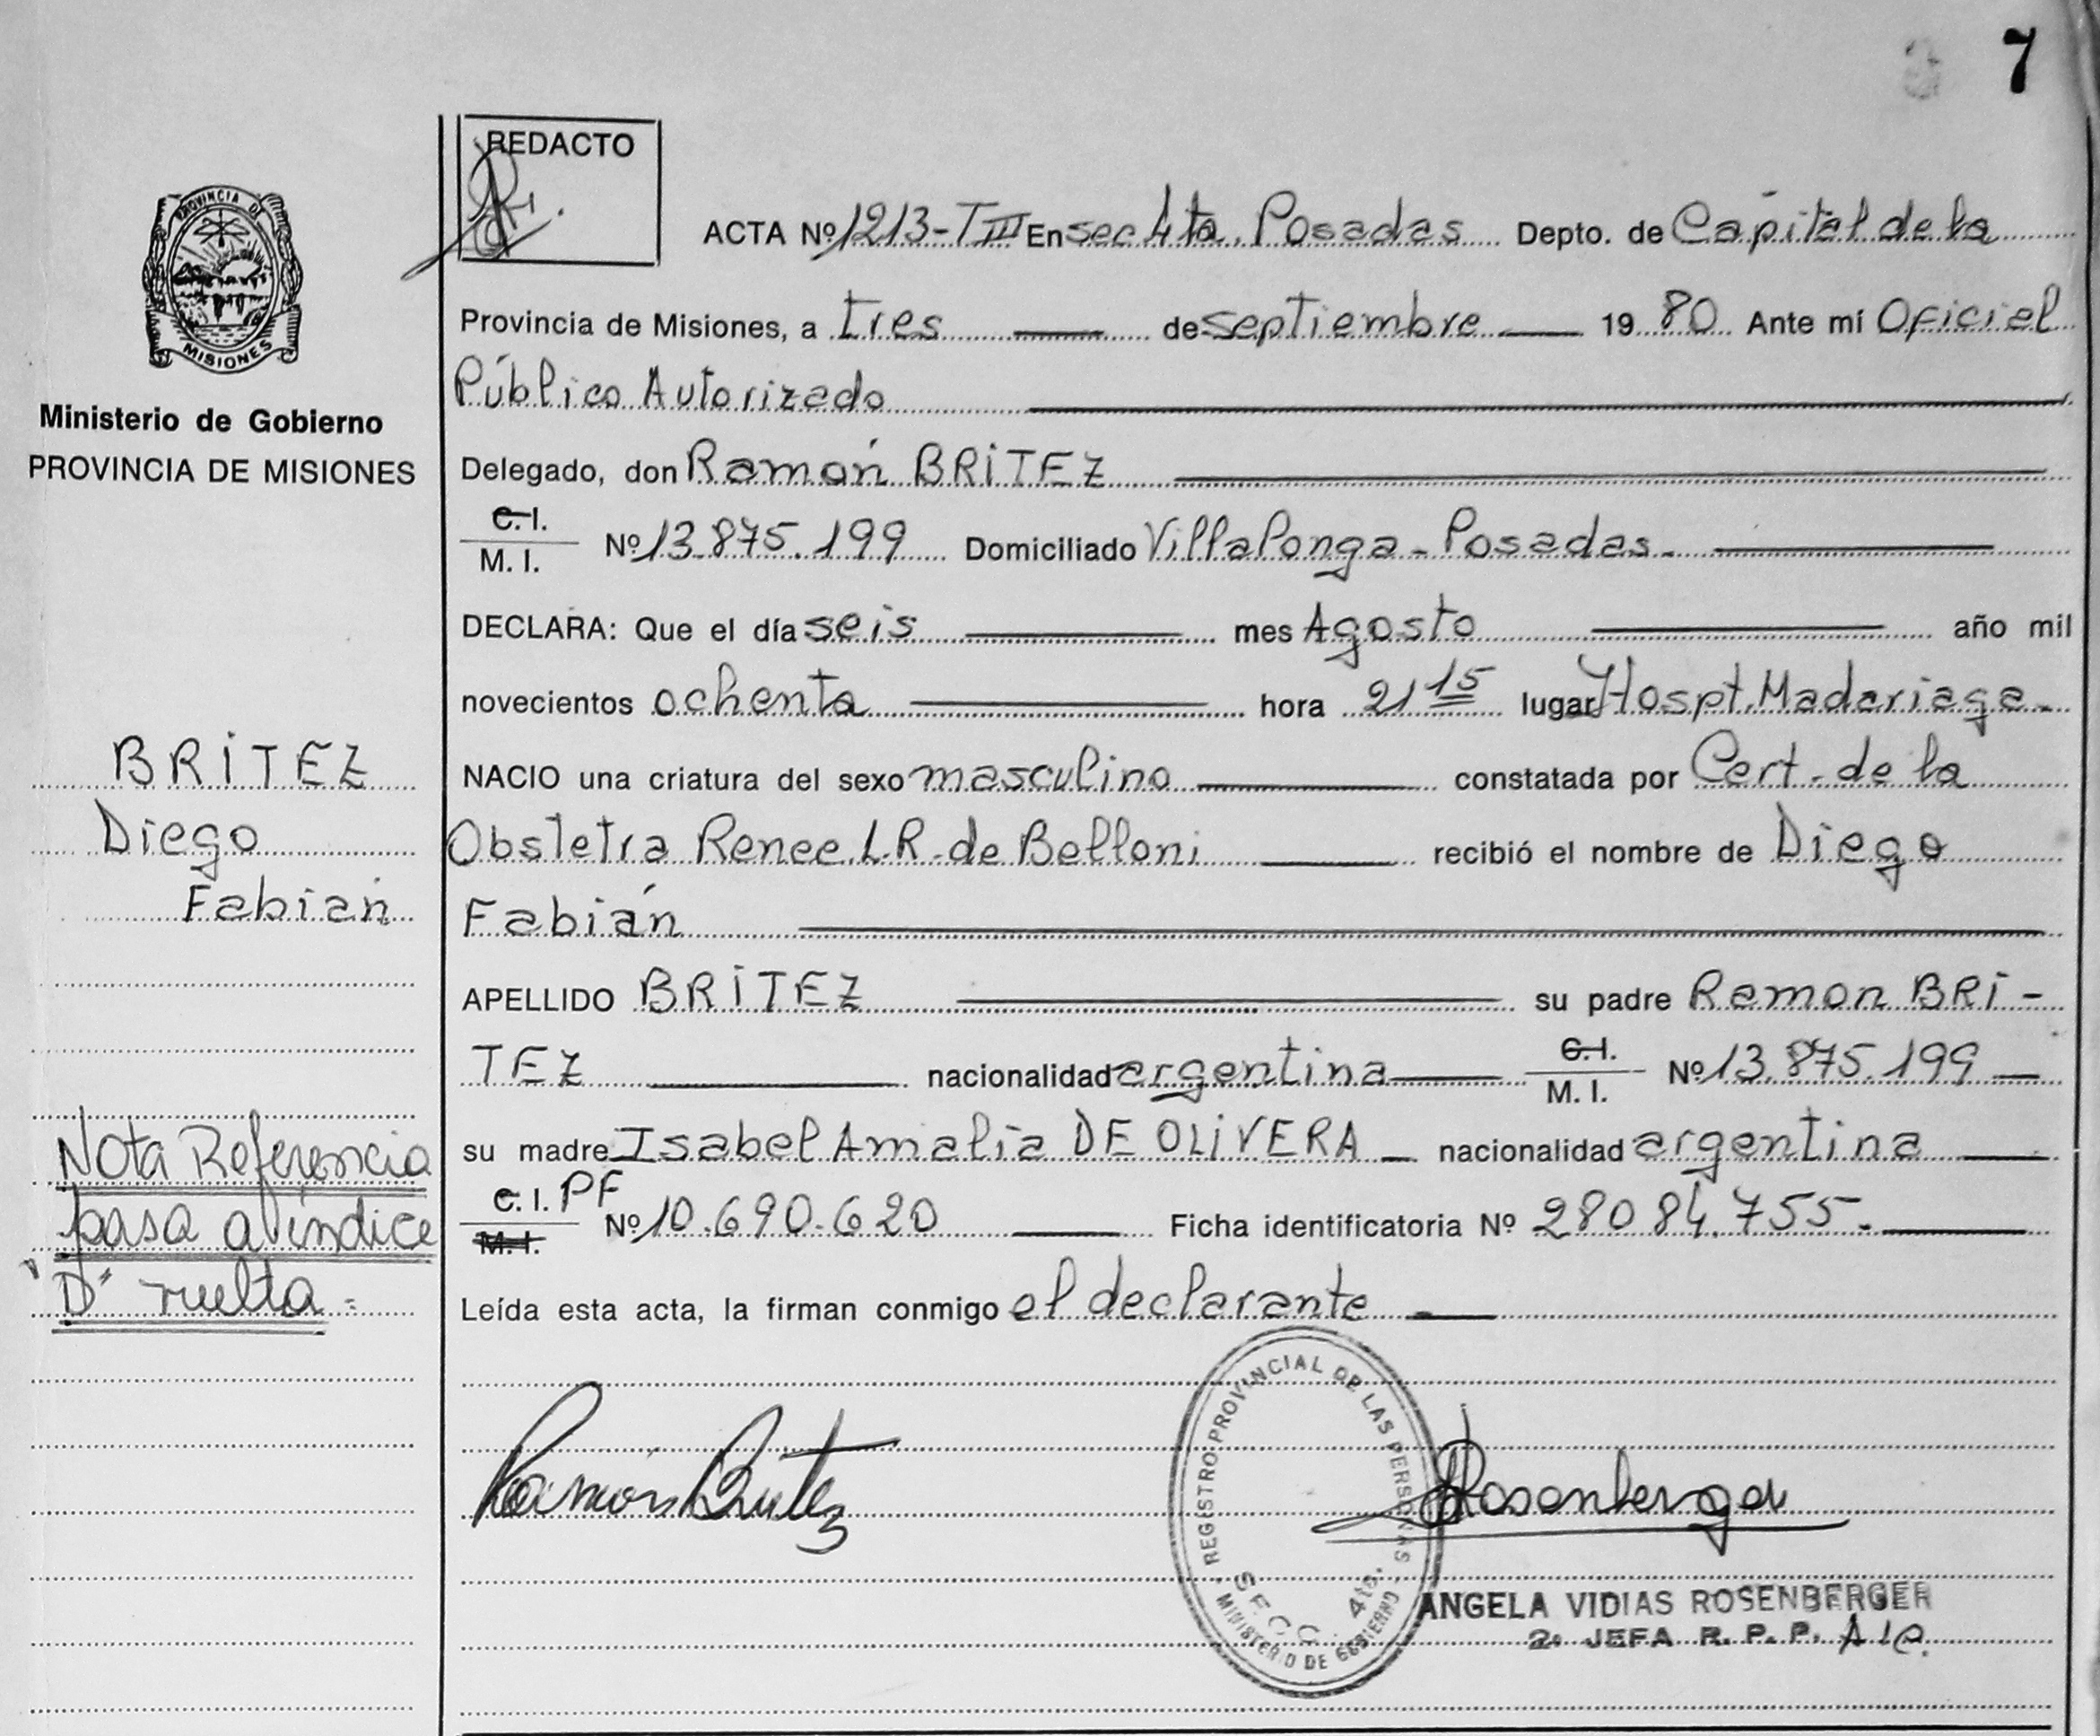 7
REDACTO
PROVINCIA DE
MISIONES
Ministerio de Gobierno
PROVINCIA DE MISIONES
BRITEZ
Diego
Fabián
Nota Referencia
pasa al índice
"D" vuelta -
ACTA Nº 1213-TIII En sec 4ta. Posadas Depto. de Capital de la
Provincia de Misiones, a tres de septiembre 19 80 Ante mí Oficial
Público Autorizado
Delegado, don Ramón BRITEZ
C. I.
M. I. Nº 13.875.199 Domiciliado Villa Longa - Posadas.
DECLARA: Que el día seis mes Agosto año mil
novecientos ochenta hora 21 15 lugar Hospt. Madariaga -
NACIO una criatura del sexo masculino constatada por Cert. de la
Obstetra Renee L.R. de Belloni recibió el nombre de Diego
Fabián
APELLIDO BRITEZ su padre Ramon BRI-
TEZ nacionalidad argentina C. I.
M. I. Nº 13.875.199
su madre Isabel Amalia DE OLIVERA nacionalidad argentina
C. I. PF
M. I. Nº 10.690.620 Ficha identificatoria Nº 28084.755.
Leída esta acta, la firman conmigo el declarante
Ramón Britez
Rosenberger
REGISTRO PROVINCIAL DE LAS PERSONAS
4ta.
MINISTERIO DE GOBIERNO
ANGELA VIDIAS ROSENBERGER
2º JEFA R. P. P. A/C.